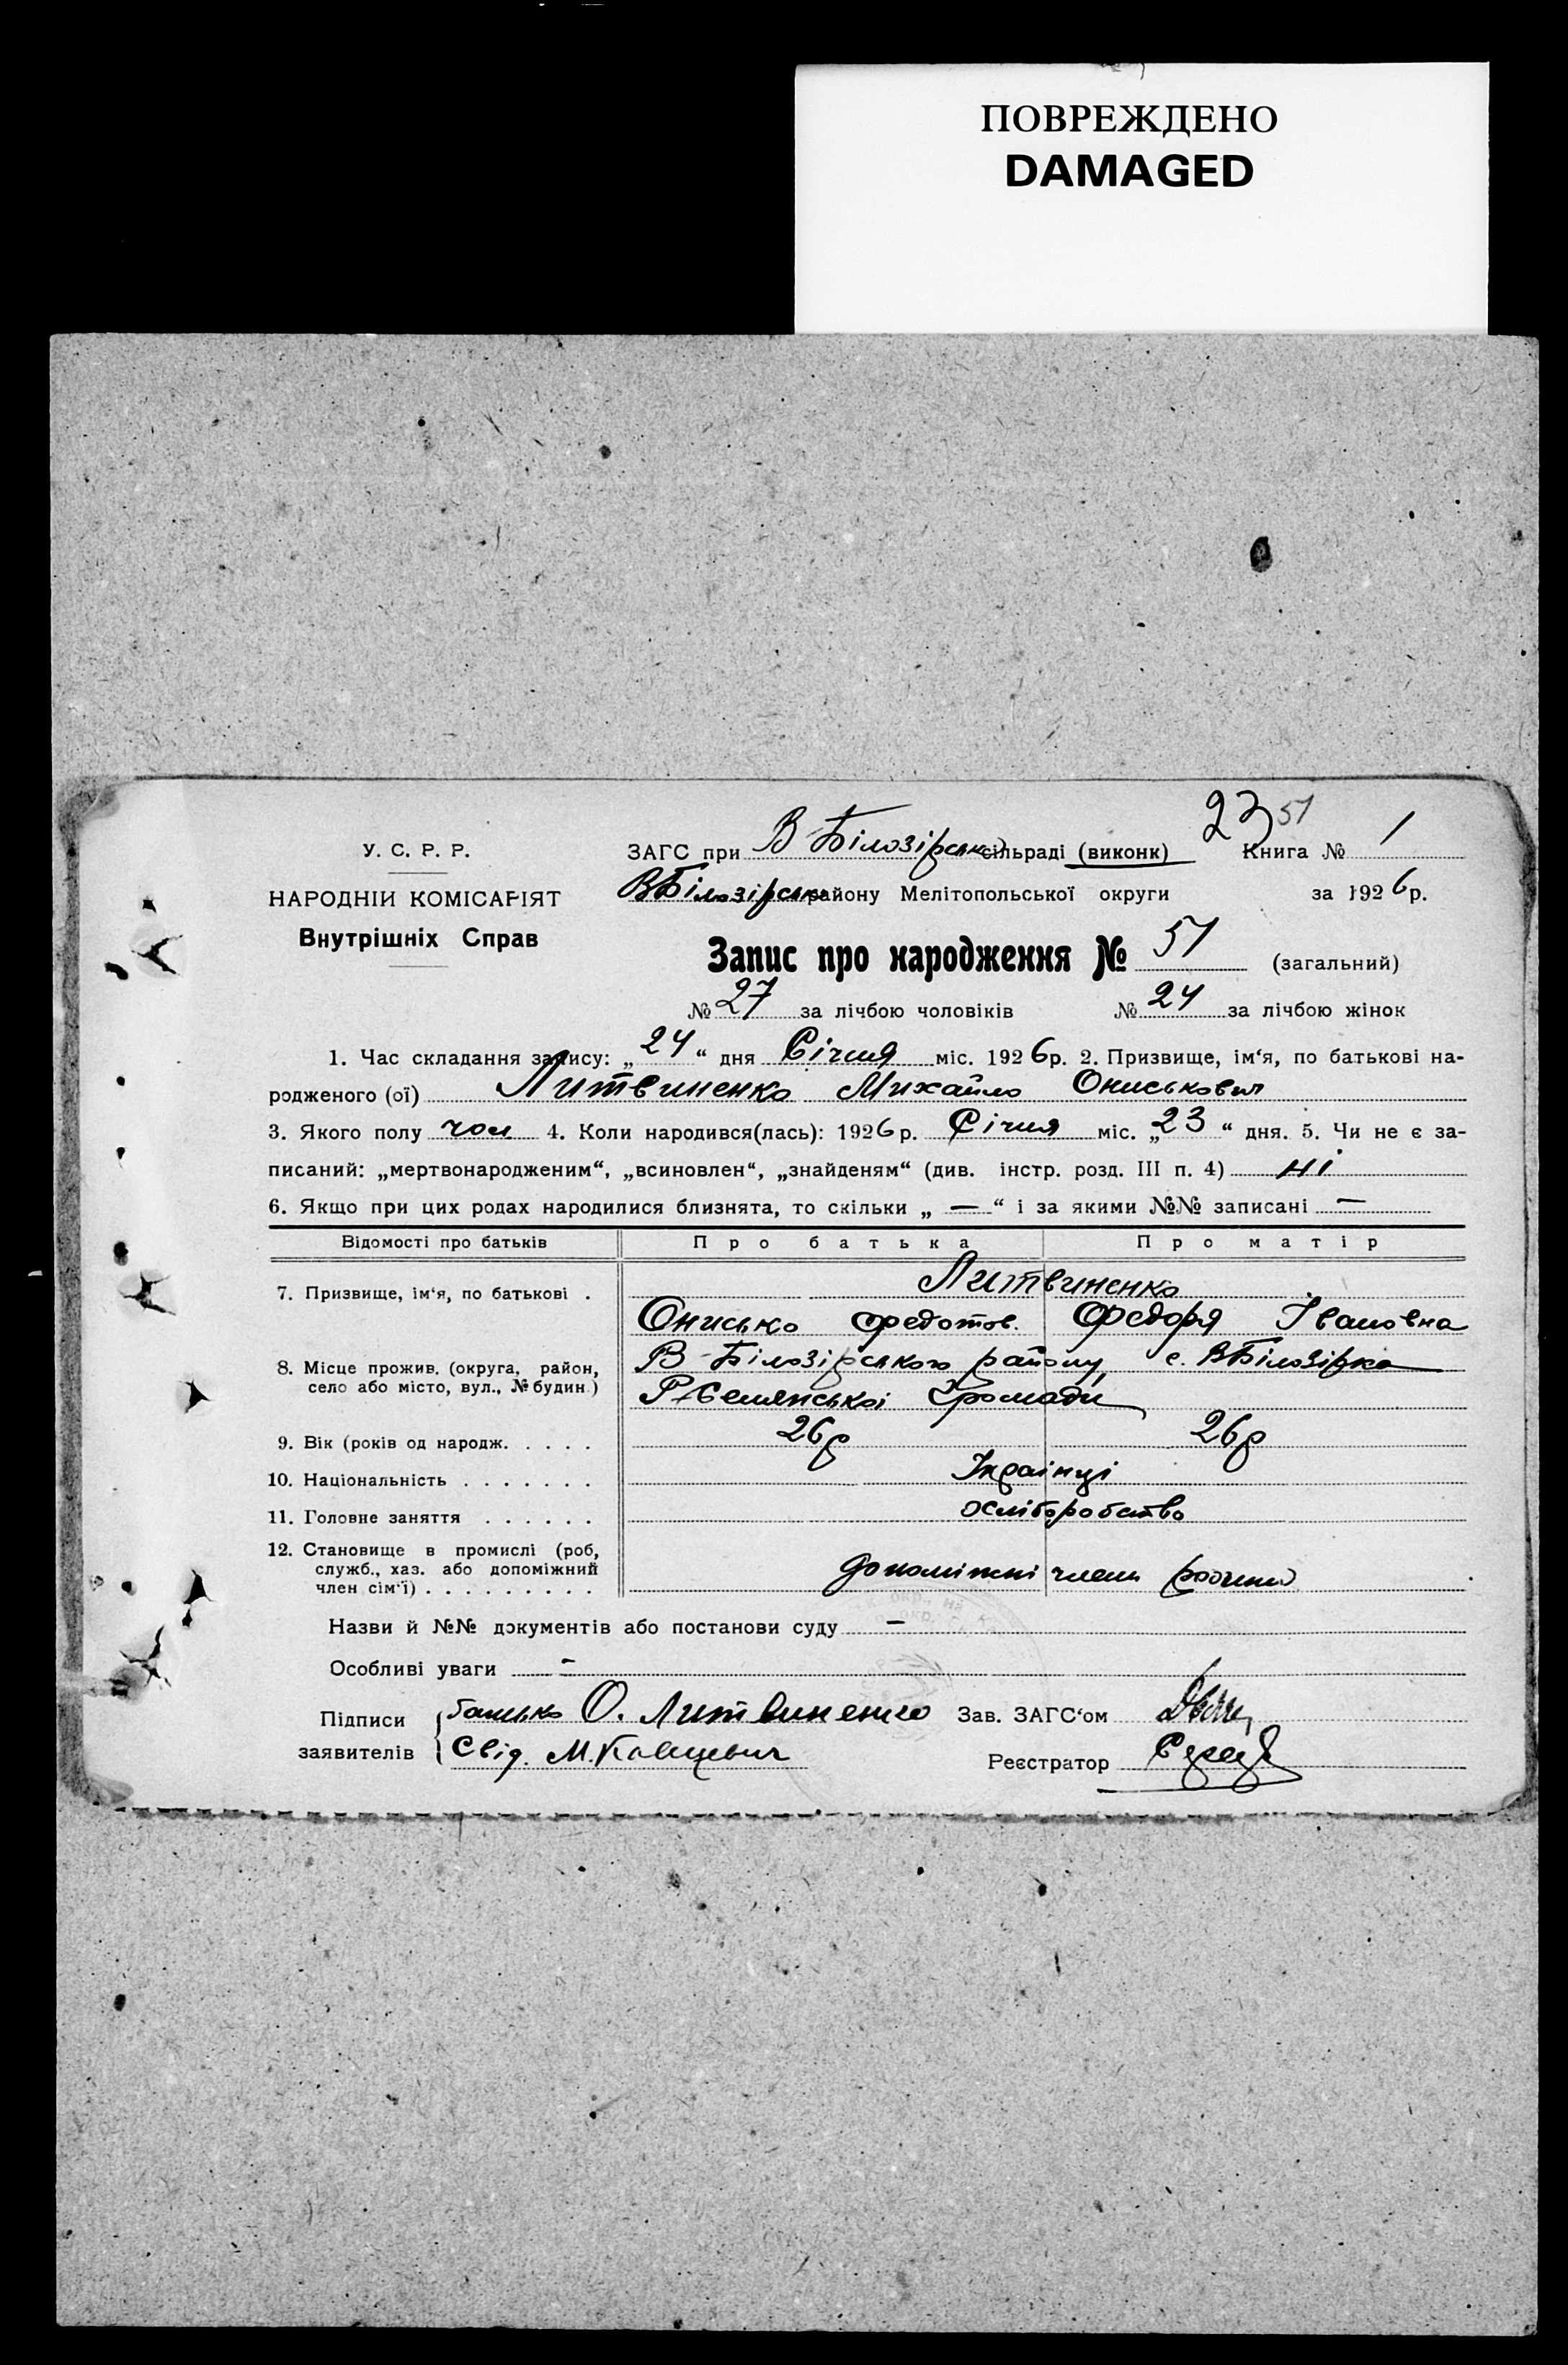 ПОВРЕЖДЕНО
DAMAGED
23 51
У. С. Р. Р.
ЗАГС при В-Білозірськ сільраді (виконк) Книга № 1
НАРОДНІЙ КОМІСАРІЯТ
ВБілозірськ району Мелітопольської округи за 1926 р.
Внутрішніх Справ
Запис про народження № 51 (загальний)
№ 27 за лічбою чоловіків № 24 за лічбою жінок
1. Час складання запису: „24“ дня Січня міс. 1926 р. 2. Призвище, ім‘я, по батькові на-
родженого (ої) Литвиненко Михайло Ониськович
3. Якого полу чол 4. Коли народився(лась): 1926 р. Січня міс. „23“ дня. 5. Чи не є за-
писаний: „мертвонародженим“, „всиновлен“, „знайденям“ (див. інстр. розд. III п. 4) ні
6. Якщо при цих родах народилися близнята, то скільки „ — “ і за якими №№ записані —
Відомості про батьків Про батька Про матір
7. Призвище, ім‘я, по батькові . Литвиненко
Онисько Федотов. Федоря Івановна
8. Місце прожив. (округа, район, село або місто, вул., № будин.) В-Білозірського району, с. ВБілозірка
Р-Семянської Громади
9. Вік (років од народж. . . . . 26 р 26 р
10. Національність . . . . . . . Українці
11. Головне заняття . . . . . . хліборобство
12. Становище в промислі (роб, служб., хаз. або допоміжний член сім‘ї) . . . . . . . . . допоміжні члени родини
Назви й №№ документів або постанови суду —
Особливі уваги —
Підписи батько О. Литвиненко Зав. ЗАГС‘ом
заявителів Свід. М. Реєстратор